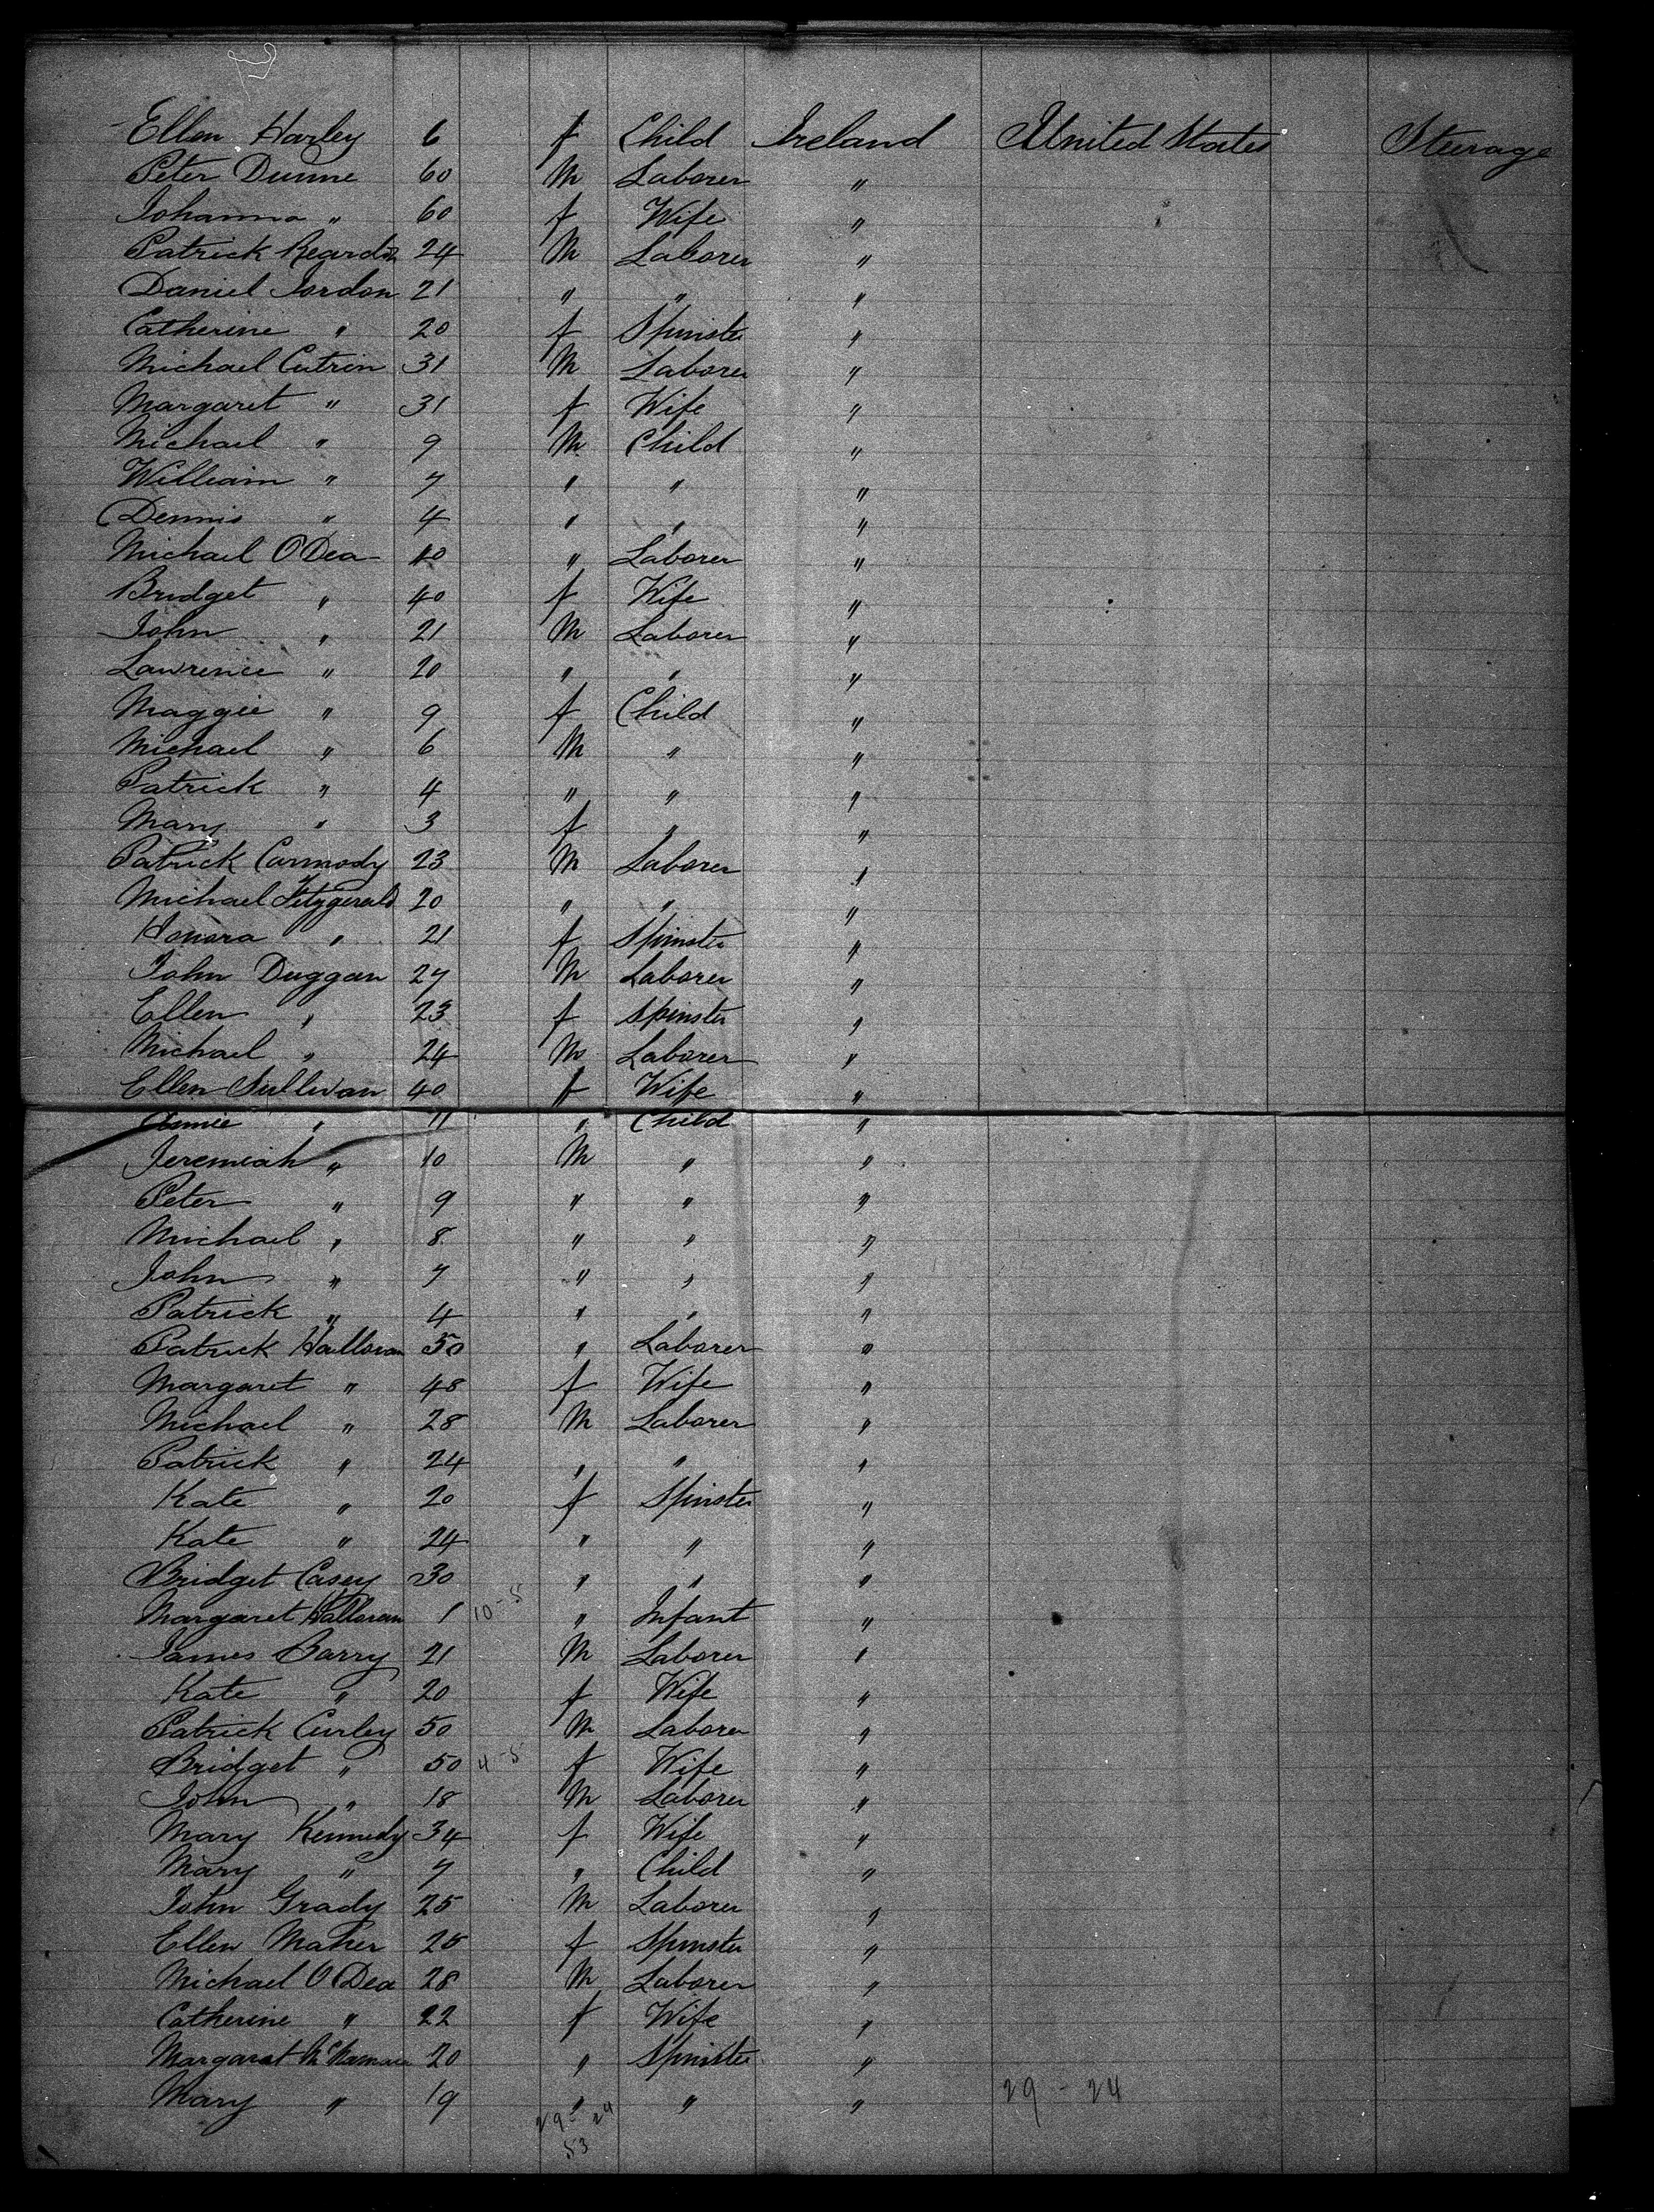 Ellen Harley 6 f Child Ireland United States Steerage
Peter Dunne 60 M Laborer "
Johanna " 60 f Wife "
Patrick Reardon 24 M Laborer "
Daniel Jordon 21 " " "
Catherine " 20 f Spinster "
Michael Cutrin 31 M Laborer "
Margaret " 31 f Wife "
Michael " 9 M Child "
William " 7 " " "
Dennis " 4 " " "
Michael O'Dea 40 " Laborer "
Bridget " 40 f Wife "
John " 21 M Laborer "
Lawrence " 20 " " "
Maggie " 9 f Child "
Michael " 6 M " "
Patrick " 4 " " "
Mary " 3 f " "
Patrick Carmody 23 M Laborer "
Michael Fitzgerald 20 " " "
Honora " 21 f Spinster "
John Duggan 27 M Laborer "
Ellen " 23 f Spinster "
Michael " 24 M Laborer "
Ellen Sullivan 40 f Wife "
Annie " 11 " Child "
Jeremiah " 10 M " "
Peter " 9 " " "
Michael " 8 " " "
John " 7 " " "
Patrick " 4 " " "
Patrick Halloran 50 " Laborer "
Margaret " 48 f Wife "
Michael " 28 M Laborer "
Patrick " 24 " " "
Kate " 20 f Spinster "
Kate " 24 " " "
Bridget Casey 30 " " "
Margaret Halloran 1 10-5 " Infant "
James Barry 21 M Laborer "
Kate " 20 f Wife "
Patrick Curley 50 M Laborer "
Bridget " 50 4-5 f Wife "
John " 18 M Laborer "
Mary Kennedy 34 f Wife "
Mary " 7 " Child "
John Grady 25 M Laborer "
Ellen Maher 25 f Spinster "
Michael O'Dea 28 M Laborer "
Catherine " 22 f Wife "
Margaret McNamara 20 " Spinster "
Mary " 19 " " " 29 - 24
29 - 24
53